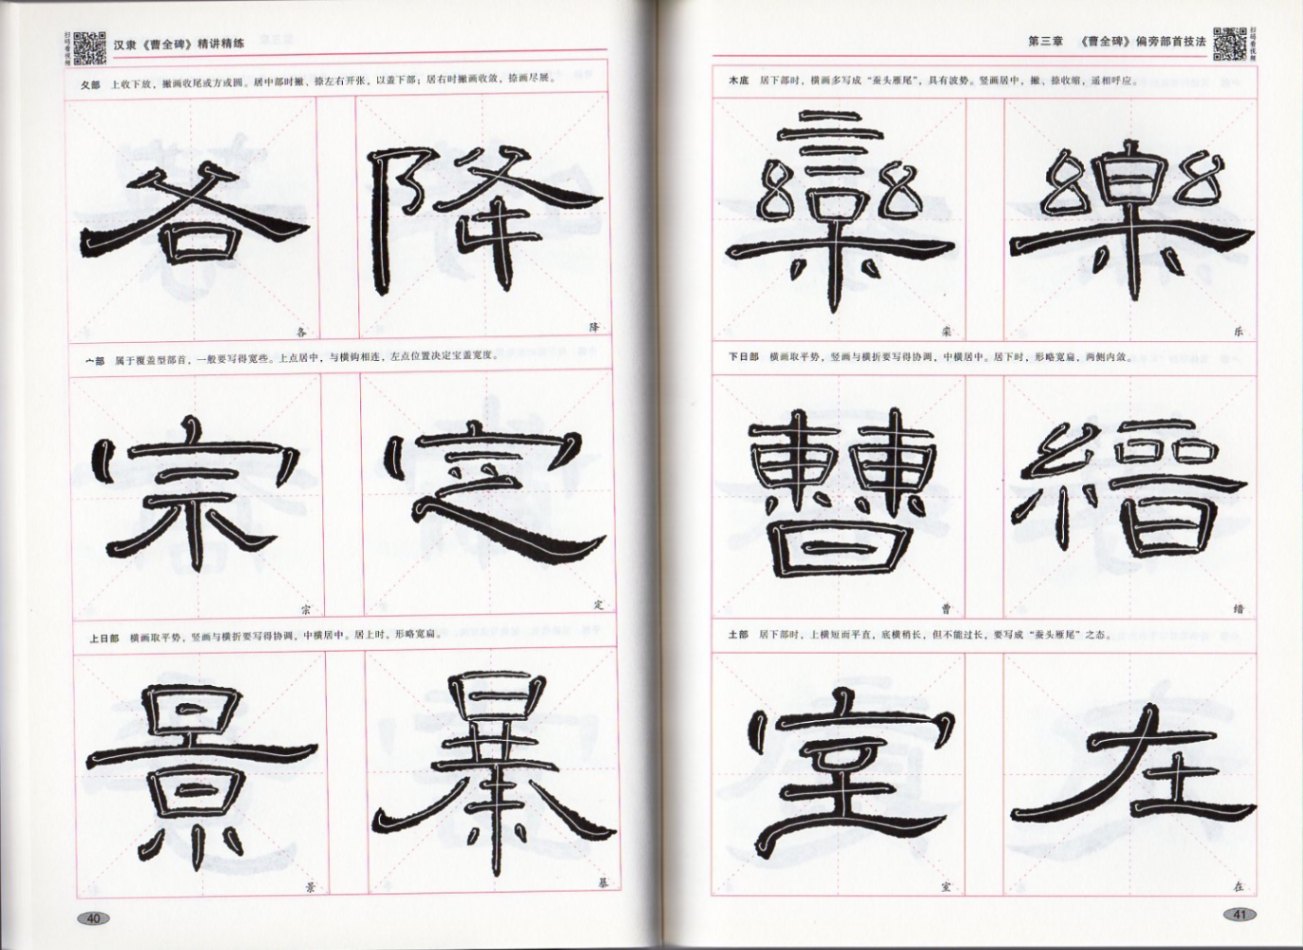 扫码看视频
汉隶《曹全碑》精讲精练
夂部 上收下放，撇画收尾或方或圆。居中部时撇、捺左右开张，以盖下部；居右时撇画收敛，捺画尽展。
各 降
各 降
宀部 属于覆盖型部首，一般要写得宽些。上点居中，与横钩相连，左点位置决定宝盖宽度。
宗 定
宗 定
上日部 横画取平势，竖画与横折要写得协调，中横居中。居上时，形略宽扁。
景 暴
景 暴
40
第三章 《曹全碑》偏旁部首技法
扫码看视频
木底 居下部时，横画多写成“蚕头雁尾”，具有波势。竖画居中，撇、捺收缩，遥相呼应。
欒 樂
栾 乐
下日部 横画取平势，竖画与横折要写得协调，中横居中。居下时，形略宽扁，两侧内敛。
曹 縉
曹 缙
土部 居下部时，上横短而平直，底横稍长，但不能过长，要写成“蚕头雁尾”之态。
室 在
室 在
41